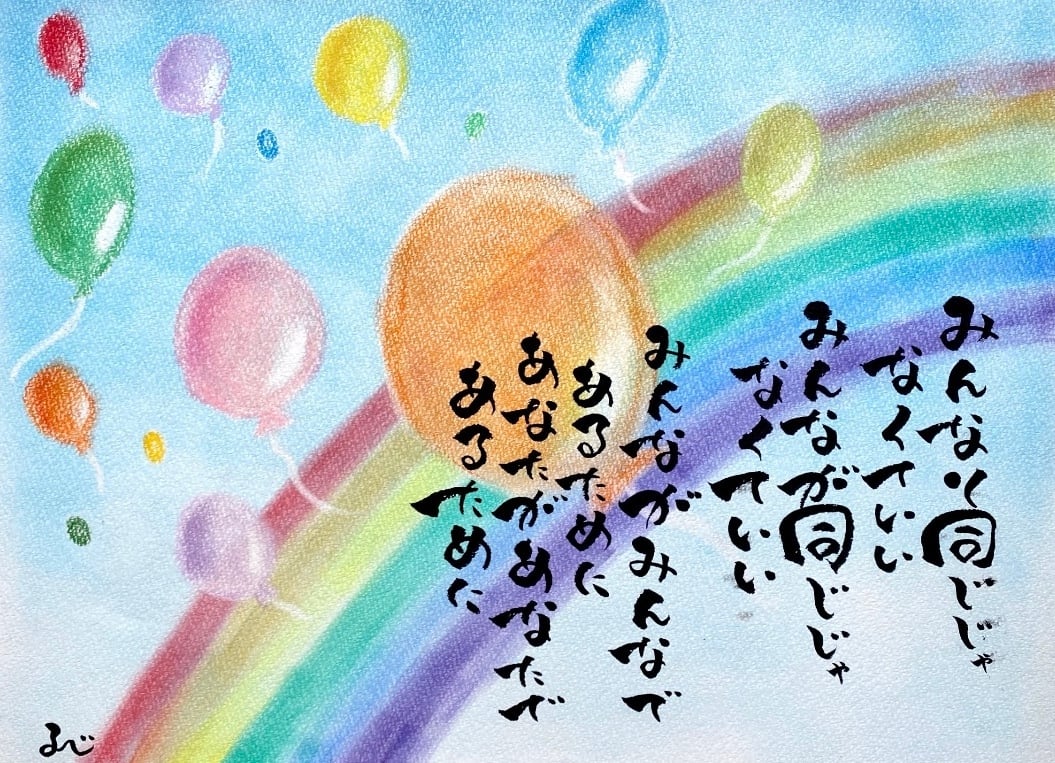 みんなと同じじゃ
なくていい
みんなが同じじゃ
なくていい
みんながみんなで
あるために
あなたがあなたで
あるために